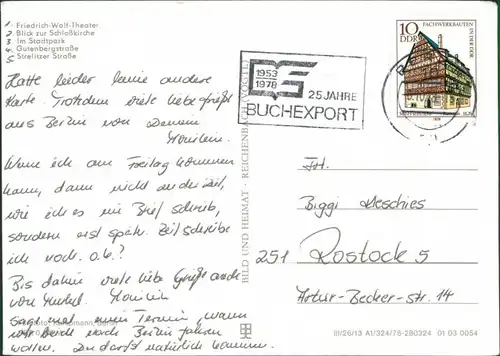 1 Friedrich-Wolf-Theater
2 Blick zur Schloßkirche
3 Im Stadtpark
4 Gutenbergstraße
5 Strelitzer Straße
Hatte leider keine andere
Karte. Trotzdem viele liebe Grüße
aus Berlin von Deinem
Wenn ich am Freitag kommen
kann, dann nicht an der Zeit,
wie ich es im Brief schrieb,
sondern erst spät. Zeit schreibe
ich noch. o.k.?
Bis dahin viele liebe Grüße auch
von
Sag mal einen Termin, wann
wir beide nach Berlin fahren
wollen. Du darfst natürlich kommen.
BILD UND HEIMAT · REICHENBACH (VOGTL)
1953
1978
25 JAHRE
BUCHEXPORT
10
DDR
FACHWERKBAUTEN
IN DER DDR
Fr.
Biggi Meschies
251 Rostock 5
Artur-Becker-str. 14
III/26/13 A1/324/78-280324 01 03 0054